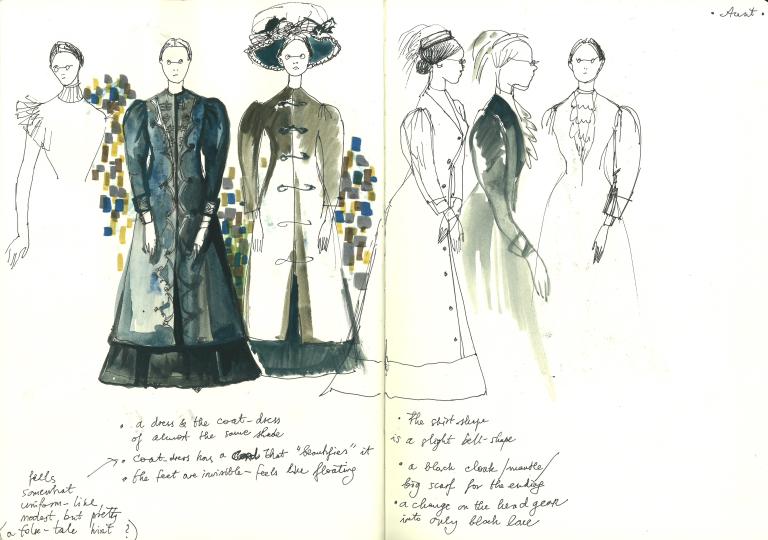 • Aunt •
• a dress & the coat-dress
of almost the same shade
• coat-dress has a that "beautifies" it
• the feet are invisible - feels like floating
feels
somewhat
uniform-like,
modest but pretty
(a folk-tale hint?)
• the skirt shape
is a slight bell-shape
• a black cloak/mantle/
big scarf for the ending
• a change on the head gear
into only black lace